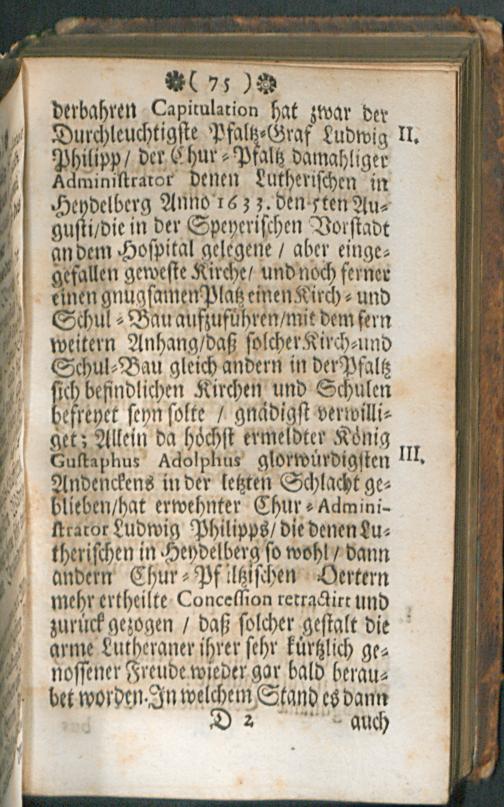 ❋( 75 )❋
derbahren Capitulation hat zwar der
Durchleuchtigste Pfaltz-Graf Ludwig II.
Philipp/ der Chur-Pfaltz damahliger
Administrator denen Lutherischen in
Heydelberg Anno 1633. den 5ten Au-
gusti/die in der Speyerischen Vorstadt
an dem Hospital gelegene / aber einge-
gefallen geweste Kirche/ und noch ferner
einen gnugsamen Platz einen Kirch- und
Schul-Bau aufzuführen/mit dem fern
weitern Anhang/daß solcher Kirch-und
Schul-Bau gleich andern in der Pfaltz
sich befindlichen Kirchen und Schulen
befreyet seyn solte / gnädigst verwilli-
get; Allein da höchst ermeldter König
Gustaphus Adolphus glorwürdigsten III.
Andenckens in der letzten Schlacht ge-
blieben/hat erwehnter Chur-Admini-
strator Ludwig Philipps/ die denen Lu-
therischen in Heydelberg so wohl/ dann
andern Chur-Pf ltzischen Oertern
mehr ertheilte Concession retractirt und
zurück gezogen / daß solcher gestalt die
arme Lutheraner ihrer sehr kürtzlich ge-
nossener Freude wieder gar bald berau-
bet worden. In welchem Stand es dann
D 2 auch